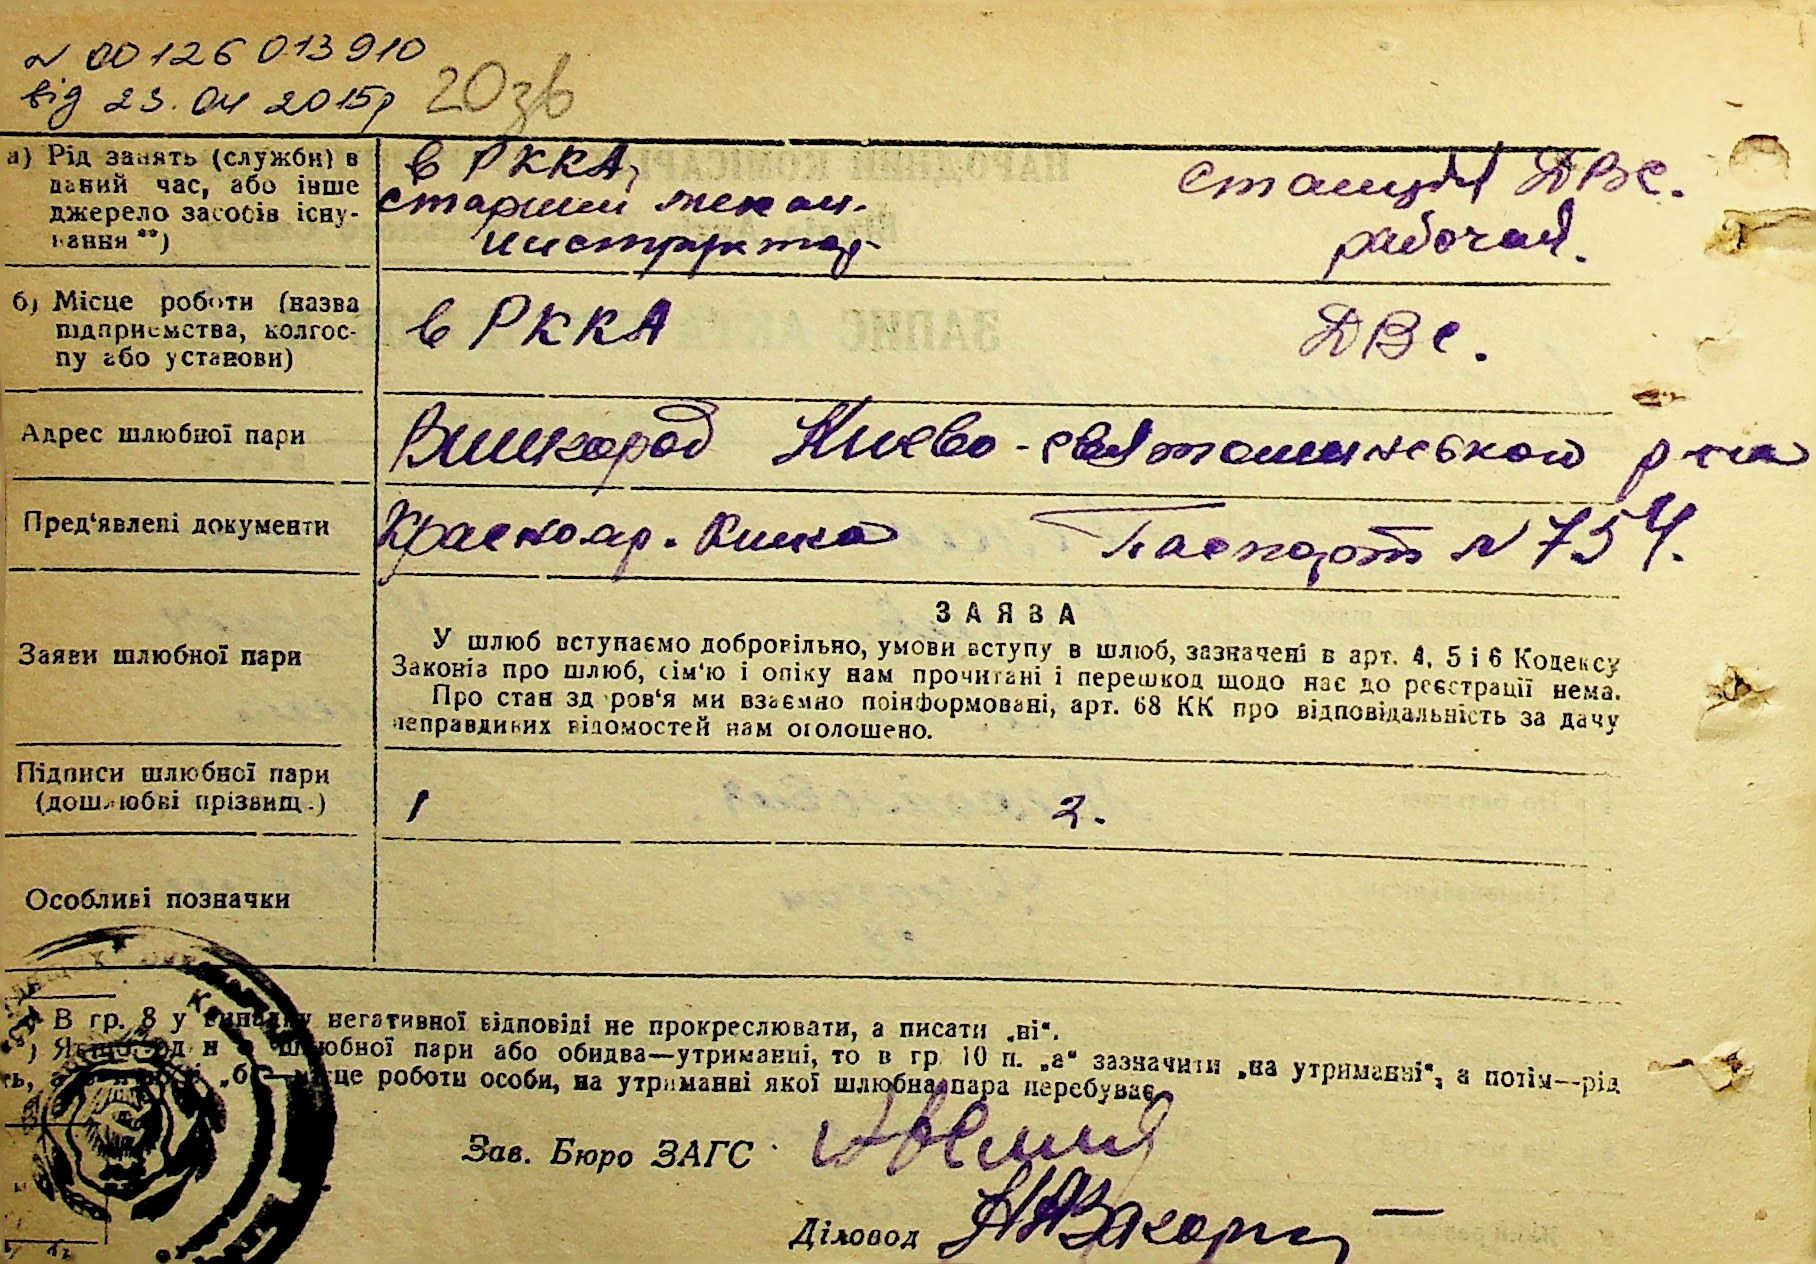 N 00126013910
від 23.04 2015р 20зв
а) Рід занять (служби) в даний час, або інше джерело засобів існування **)
в РККА, старший механ. инструктор
станция ДВС. рабочая.
б) Місце роботи (назва підприємства, колгоспу або установи)
в РККА
ДВС.
Адрес шлюбної пари
Вишгород Києво-святошинського р-на
Пред‘явлені документи
Красноар. книжка
Паспорт N 754.
Заяви шлюбної пари
ЗАЯВА
У шлюб вступаємо добровільно, умови вступу в шлюб, зазначені в арт. 4, 5 і 6 Кодексу
Законів про шлюб, сім‘ю і опіку нам прочитані і перешкод щодо нас до реєстрації нема.
Про стан здоров‘я ми взаємно поінформовані, арт. 68 КК про відповідальність за дачу
неправдивих відомостей нам оголошено.
Підписи шлюбної пари (дошлюбні прізвищ.)
1
2.
Особливі позначки
В гр. 8 у випадку негативної відповіді не прокреслювати, а писати „ні“.
) Якщо один з шлюбної пари або обидва—утриманці, то в гр. 10 п. „а“ зазначити „на утриманні“, а потім—рід
місце роботи особи, на утриманні якої шлюбна пара перебуває
Зав. Бюро ЗАГС
Діловод